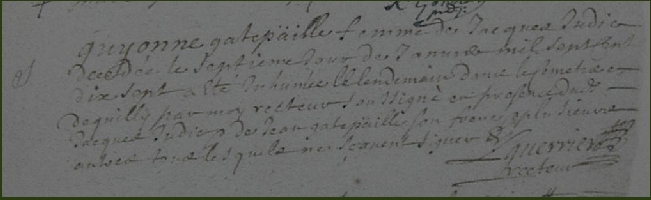 guyonne gatepaille femme de Jacques Judic
decedée le septieme Jour de Janvier mil sept cent
dix sept a eté Inhumée le lendemain dans le semetiere
de quilly par moy recteur soussigné en presence dudt
Jacques Judic de Jean gatepaille son frere et plusieurs
autres tous lesquels ne scavent signer
guerrier
recteur